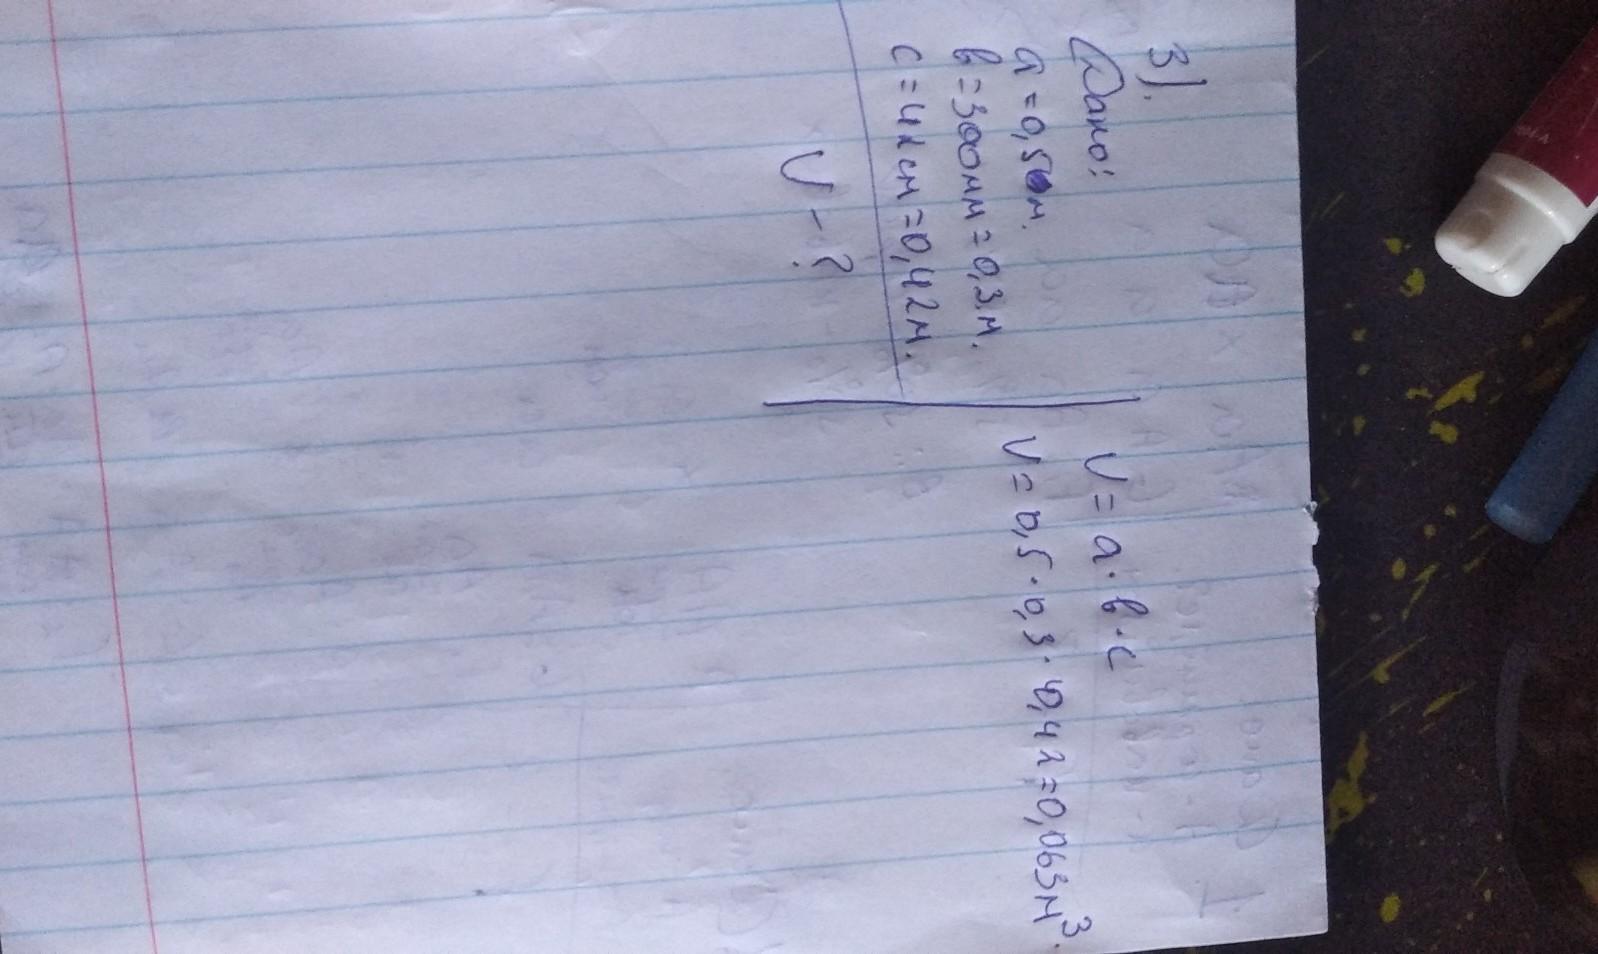 3).
Дано:
a = 0,5 м.
в = 300мм = 0,3м.
с = 42см = 0,42м.
V - ?
V = a · в · с
V = 0,5 · 0,3 · 0,42 = 0,063м³.